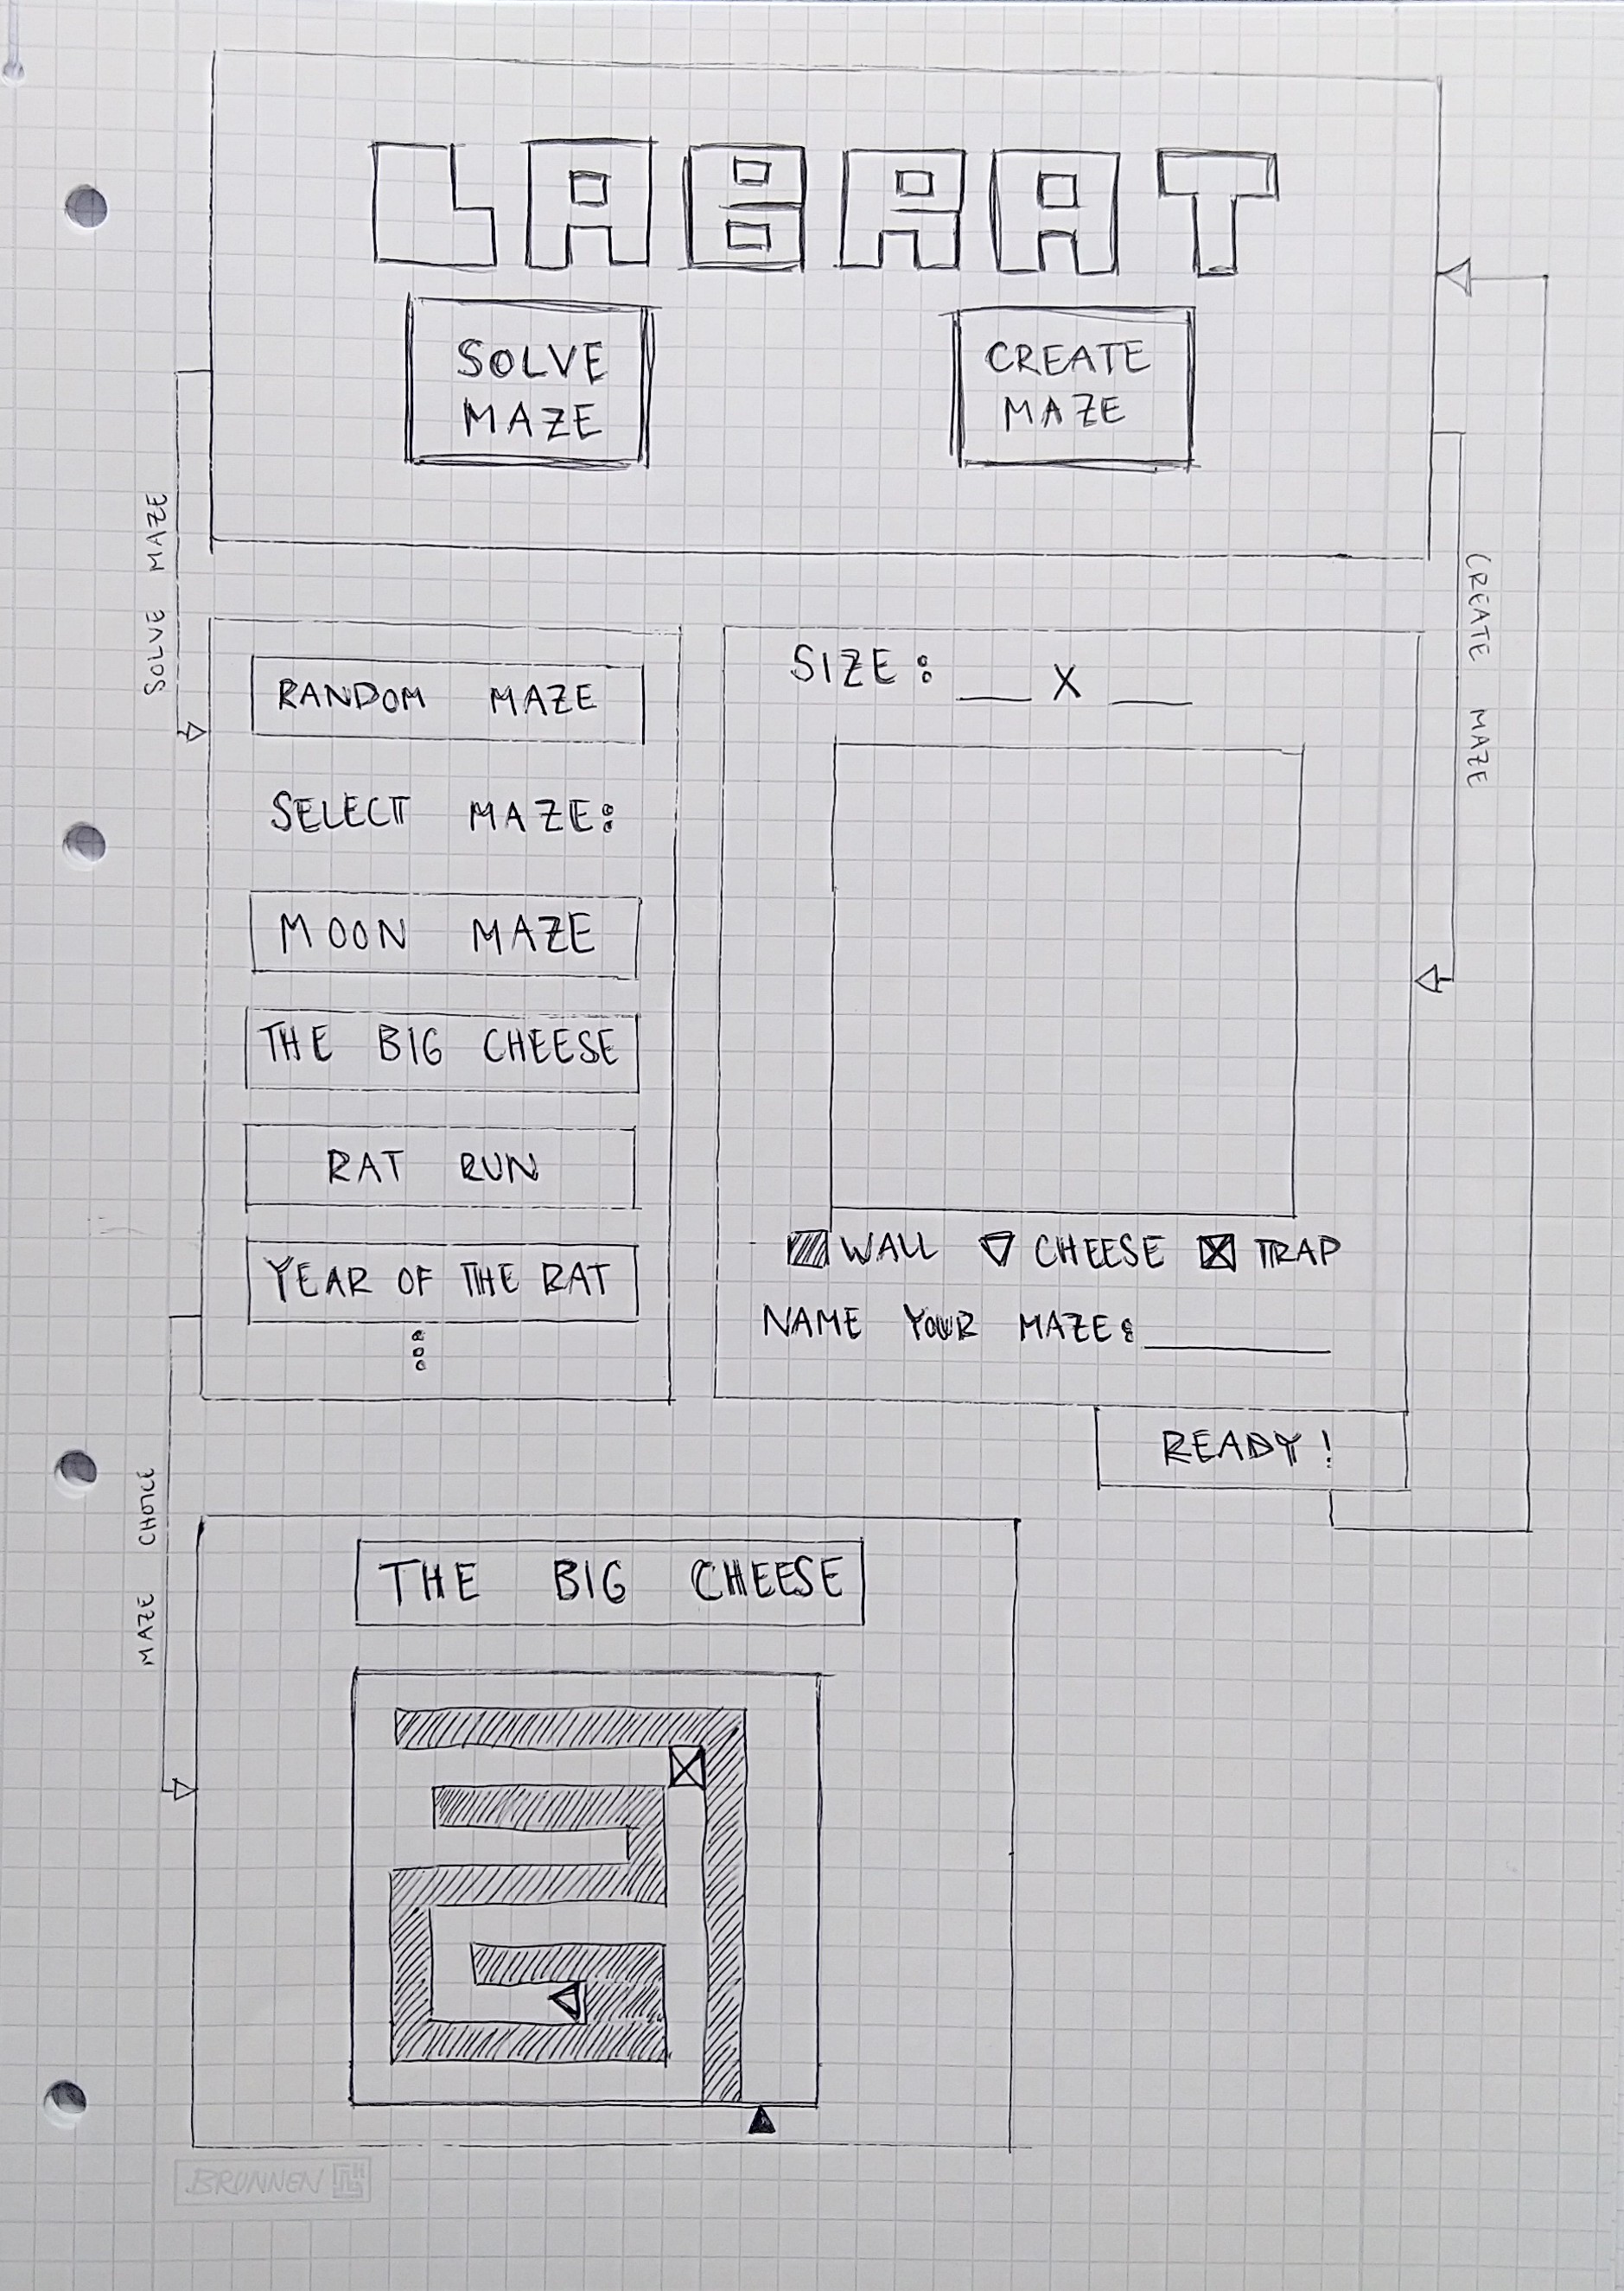 LABRAT
SOLVE
MAZE
CREATE
MAZE
SOLVE MAZE
CREATE MAZE
RANDOM MAZE
SELECT MAZE:
MOON MAZE
THE BIG CHEESE
RAT RUN
YEAR OF THE RAT
SIZE: ___ X ___
WALL CHEESE TRAP
NAME YOUR MAZE: ______
READY!
MAZE CHOICE
THE BIG CHEESE
BRUNNEN